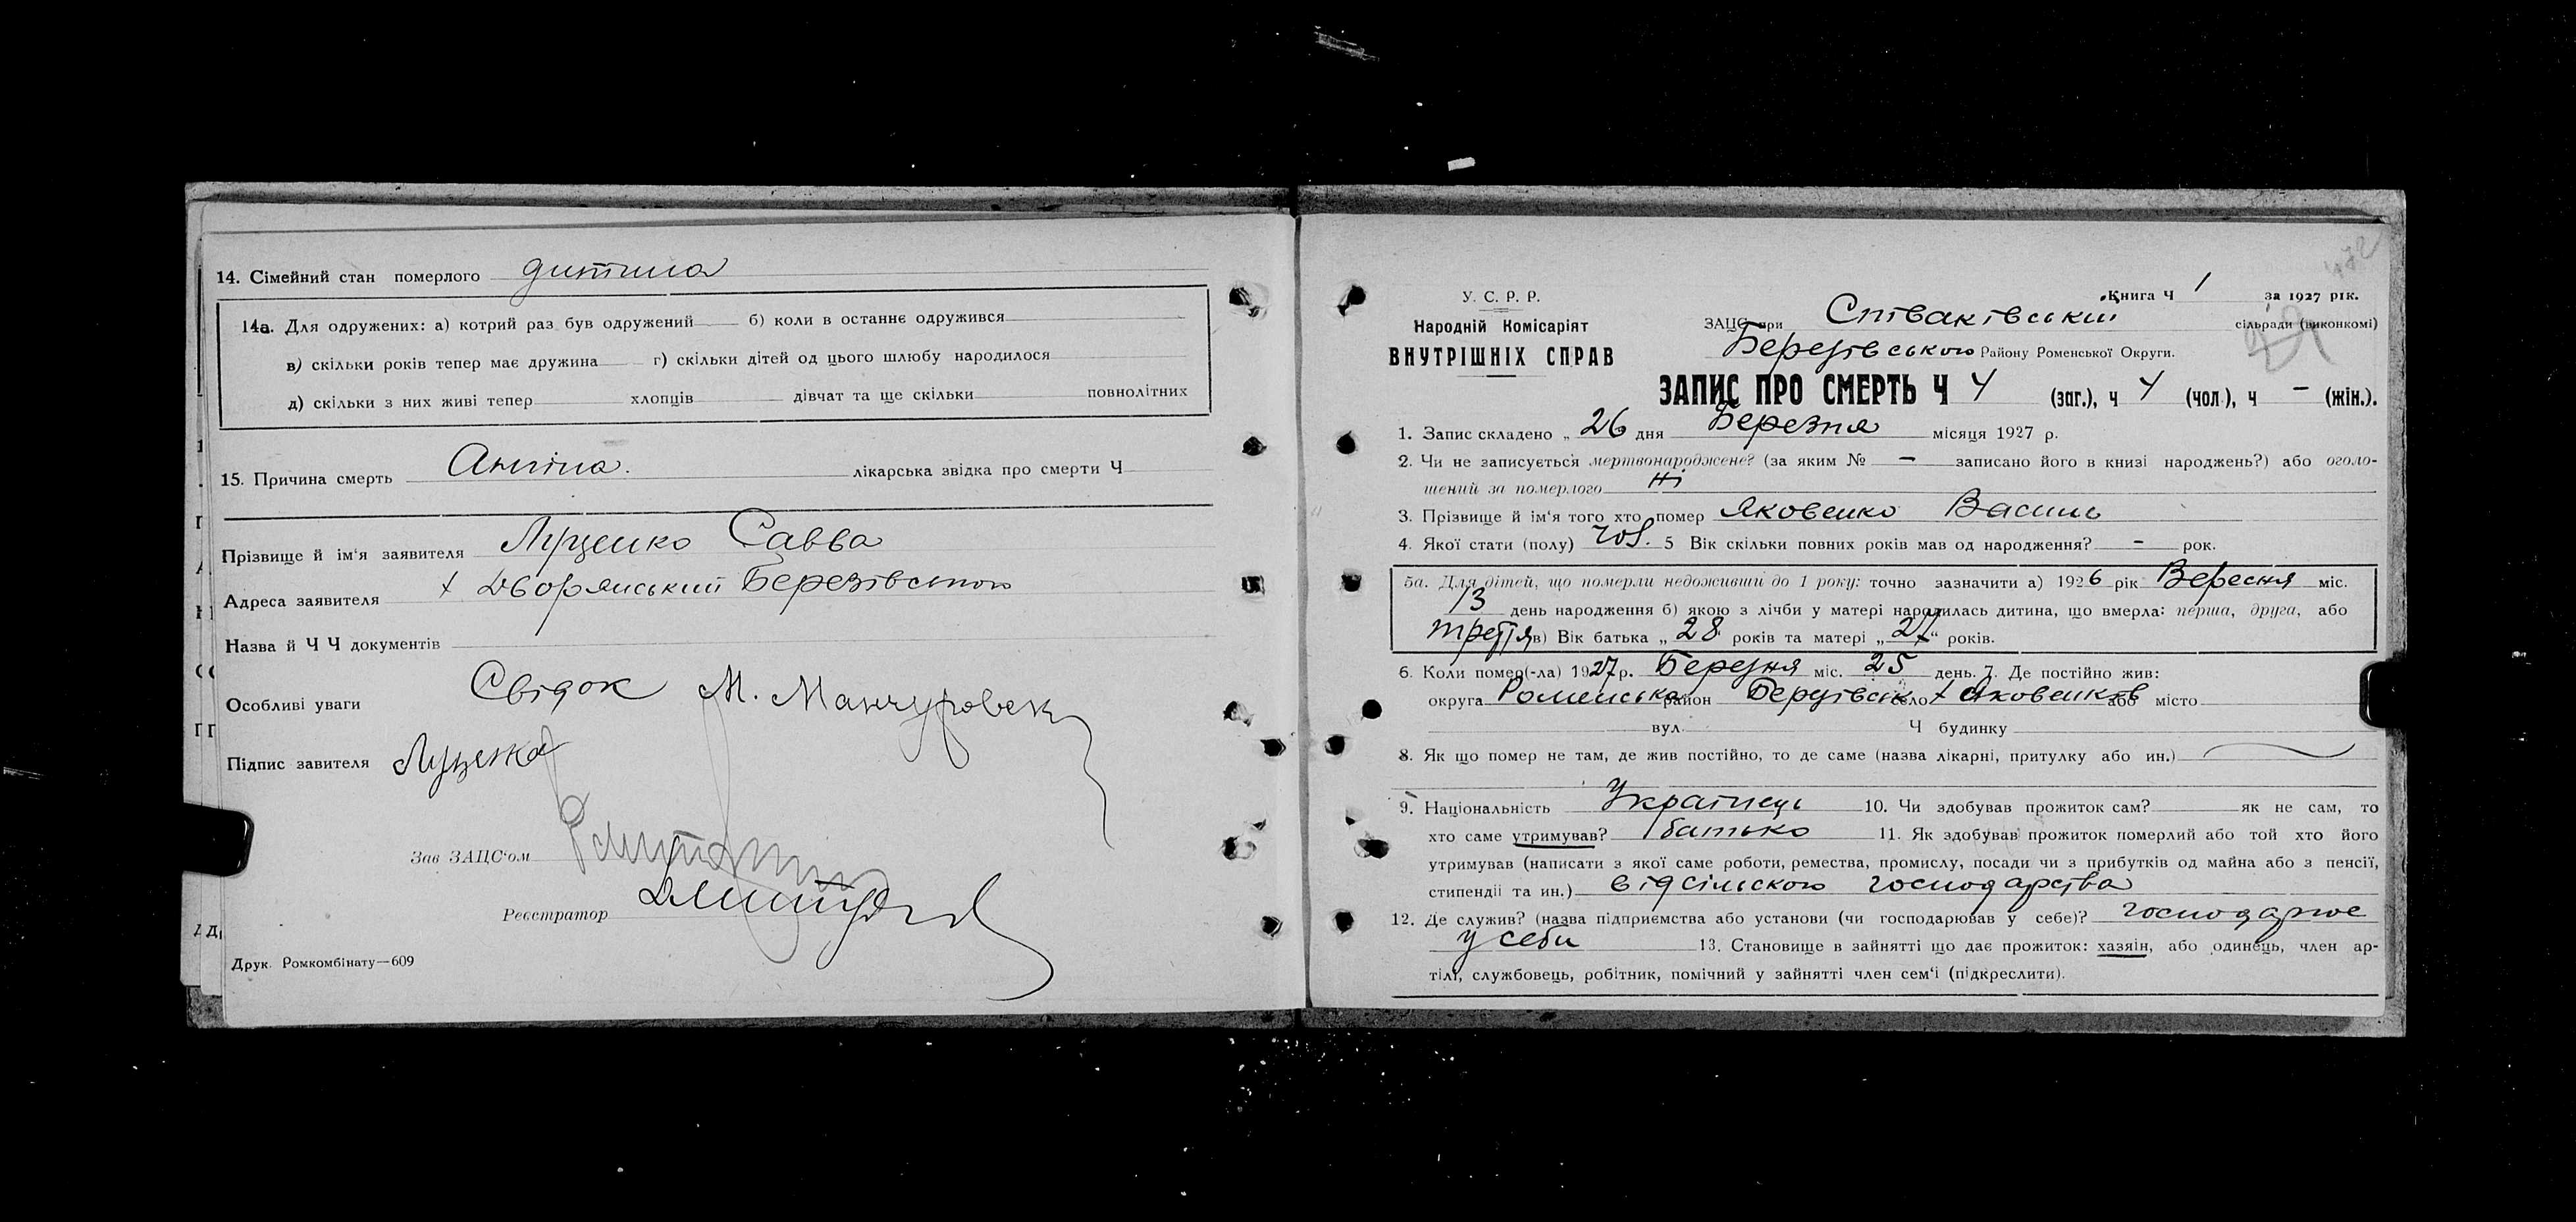 14. Сімейний стан померлого дитина
14а. Для одружених: а) котрий раз був одружений б) коли в останнє одружився
в) скільки років тепер має дружина г) скільки дітей од цього шлюбу народилося
д) скільки з них живі тепер хлопців дівчат та ще скільки повнолітних
15. Причина смерть Ангіна. лікарська звідка про смерти Ч
Прізвище й ім'я заявителя Луценко Савва
Адреса заявителя х Дворянський Березівського
Назва й Ч Ч документів
Особливі уваги Свідок М.
Підпис завителя Луценко
Зав ЗАЦС'ом
Реєстратор
Друк. Ромкомбінату—609
У. С. Р. Р.
Народній Комісаріят
ВНУТРІШНІХ СПРАВ
Книга Ч 1 за 1927 рік.
ЗАЦС при Співаківський сільради (виконкомі)
Березівського Району Роменської Округи.
ЗАПИС ПРО СМЕРТЬ Ч 4 (заг.), ч 4 (чол), ч – (жін.).
1. Запис складено „ 26 дня Березня місяця 1927 р.
2. Чи не записується мертвонароджене? (за яким № – записано його в книзі народжень?) або оголо-
шений за померлого Ні
3. Прізвище й ім'я того хто помер Яковенко Василь
4. Якої стати (полу) чол. 5 Вік скільки повних років мав од народження? – рок.
5а. Для дітей, що померли недоживши до 1 року: точно зазначити а) 1926 рік Вересня міс.
13 день народження б) якою з лічби у матері народилась дитина, що вмерла: перша, друга, або
третя в) Вік батька „ 28 років та матері „ 27 “ років.
6. Коли помер(-ла) 1927 р. Березня міс. 25 день. 7. Де постійно жив:
округа Роменська район Березівськ село х Яковенків або місто
вул. Ч будинку
8. Як що помер не там, де жив постійно, то де саме (назва лікарні, притулку або ин.)
9. Національність Українець 10. Чи здобував прожиток сам? як не сам, то
хто саме утримував? батько 11. Як здобував прожиток померлий або той хто його
утримував (написати з якої саме роботи, ремества, промислу, посади чи з прибутків од майна або з пенсії,
стипендії та ин.) від сільского господарства
12. Де служив? (назва підприємства або установи (чи господарював у себе)? господарює
у себи 13. Становище в зайнятті що дає прожиток: хазяін, або одинець, член ар-
тілі, службовець, робітник, помічний у зайнятті член сем'ї (підкреслити).